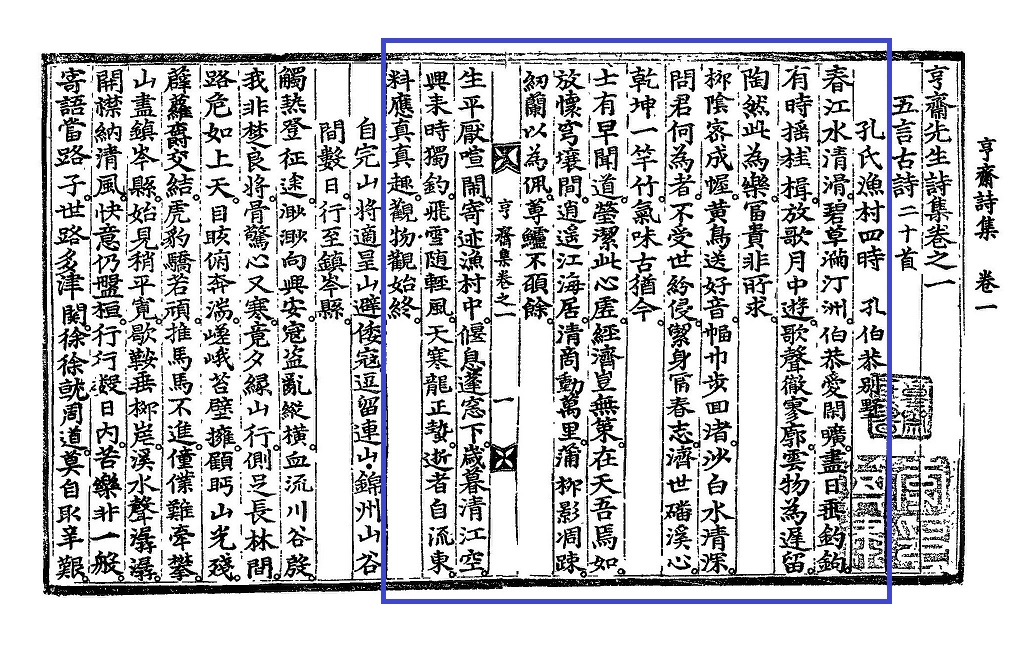 亨齋詩集 卷一
亨齋先生詩集卷之一
五言古詩二十首
孔氏漁村四時 孔伯恭別墅
春江水清滑碧草涵汀洲伯恭愛閒曠盡日垂釣鉤
有時搖桂楫放歌月中遊歌聲徹寥廓雲物為遲留
陶然此為樂冨貴非所求
柳陰密成幄黃鳥送好音幅巾步回渚沙白水清深
問君何為者不受世紛侵潔身冨春志濟世磻溪心
乾坤一竿竹氣味古猶今
士有早聞道瑩潔此心虛經濟豈無策在天吾焉如
放懷穹壤間逍遙江海居清商動萬里蒲柳影凋踈
紉蘭以為佩尊鱸不願餘
亨齋集卷之一 一
生平厭喧鬧寄迹漁村中偃息蓬窓下歲暮清江空
興来時獨釣飛雪随輕風天寒龍正蟄逝者自流東
料應真真趣觀物觀始終
自完山將適星山避倭寇逗留連山錦州山谷
間數日行至鎮岑縣
觸熱登征途渺渺向興安寇盜亂縱橫血流川谷殷
我非楚良將骨驚心又寒竟夕緣山行側足長林間
路危如上天目眩俯奔湍嵯峨苔壁擁顧眄山光殘
薜蘿爵交結虎豹驕若頑推馬馬不進僮僕難牽攀
山盡鎮岑縣始見稍平寬歇鞍垂柳岸溪水聲潺潺
開襟納清風快意仍盤桓行行凝日內苦樂非一般
寄語當路子世路多津関徐徐就周道莫自取辛艱